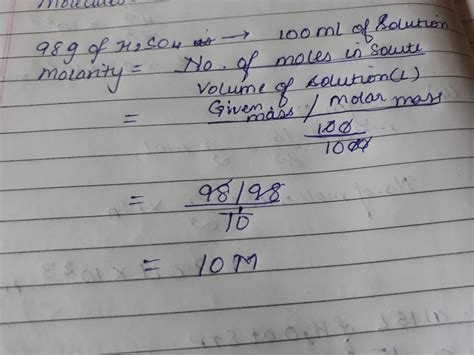 Molecules
98g of H2SO4 is → 100ml of Solution
Molarity = No. of moles in Solute
Volume of solution(L)
= Given mass / Molar mass
100
1000
= 98/98
10
= 10M